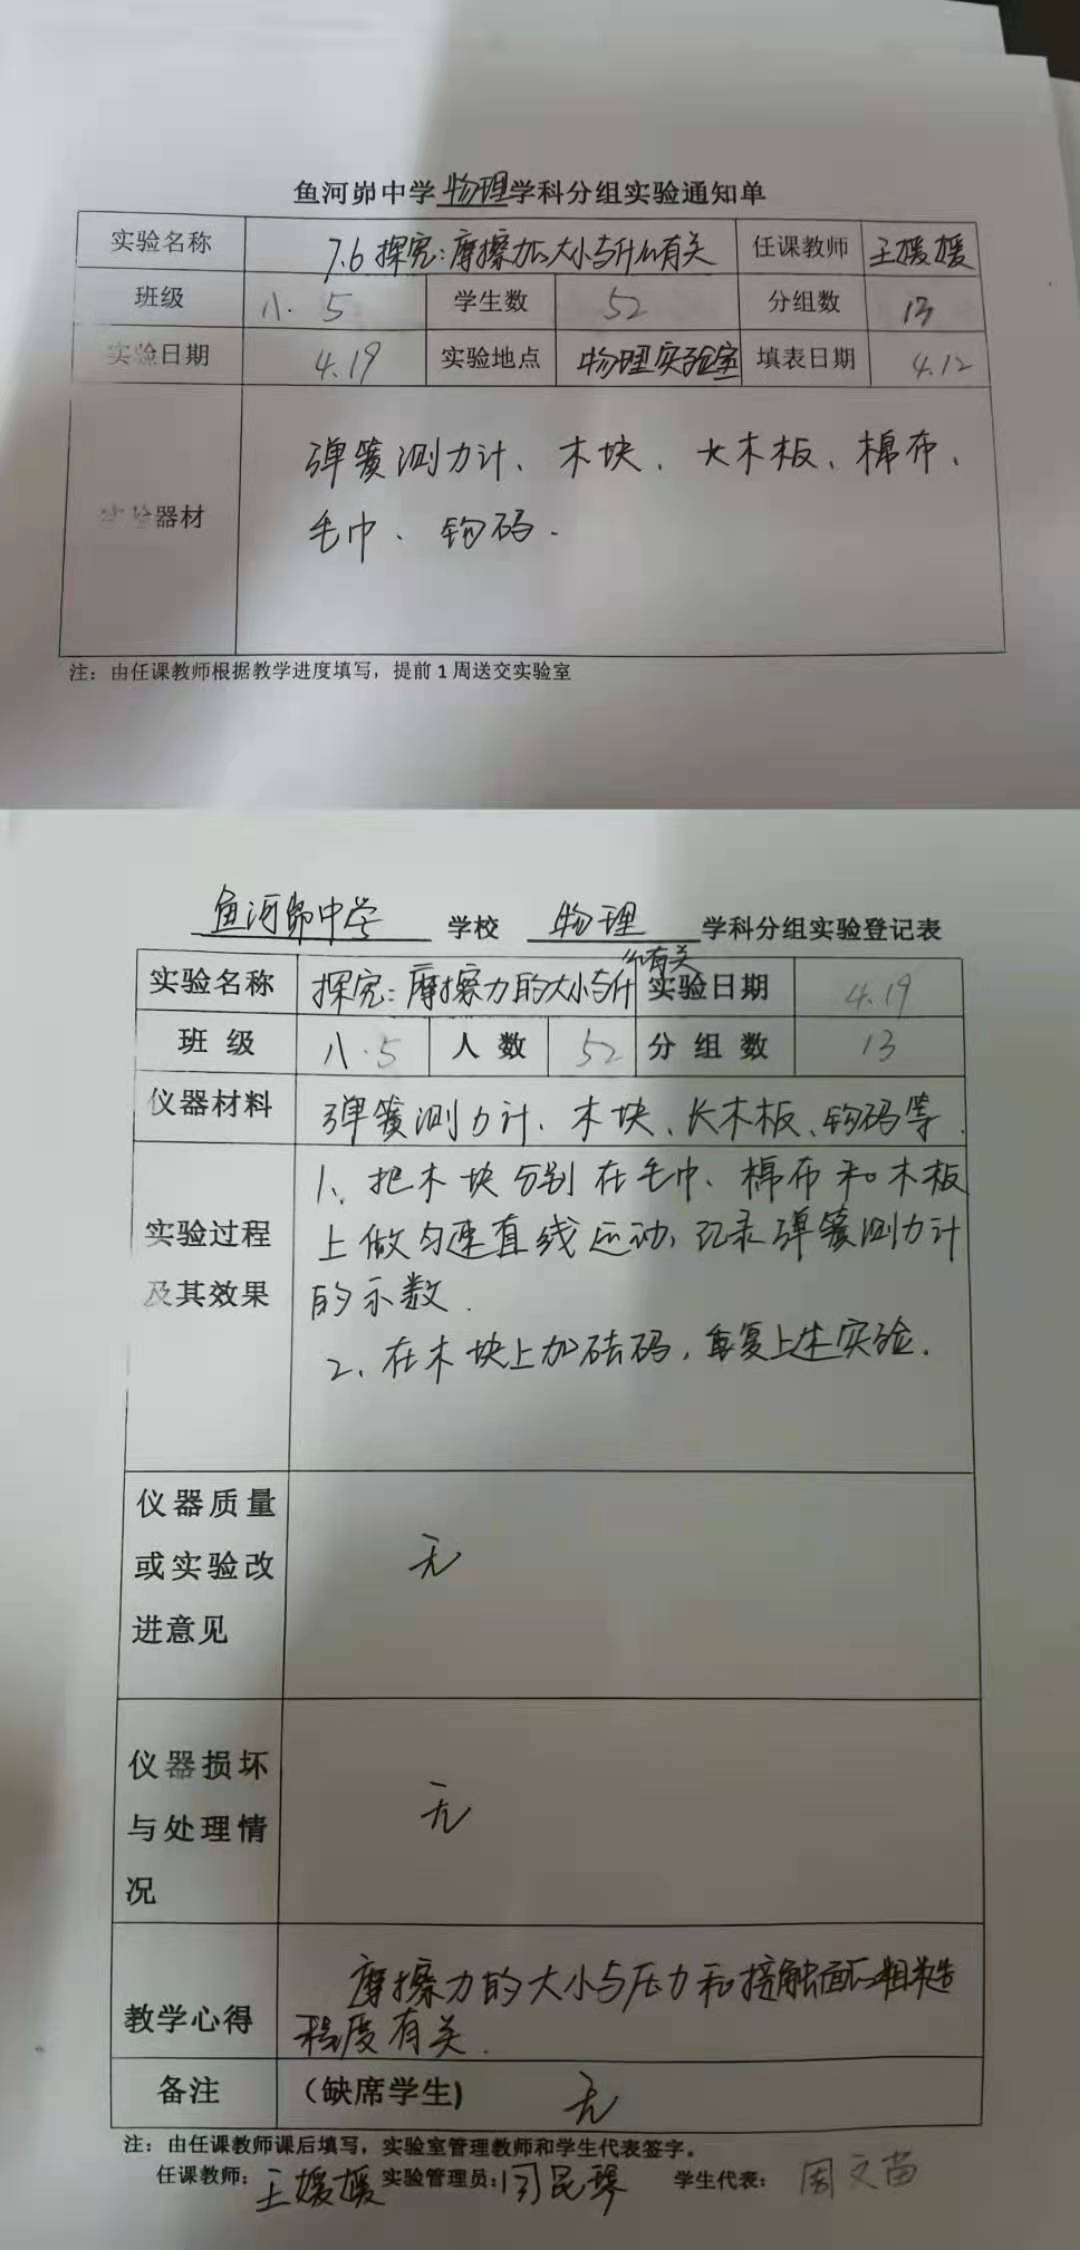 鱼河峁中学物理学科分组实验通知单
实验名称 7.6 探究:摩擦力的大小与什么有关 任课教师 王媛媛
班级 八.5 学生数 52 分组数 13
实验日期 4.19 实验地点 物理实验室 填表日期 4.12
弹簧测力计、木块、长木板、棉布、
实验器材
毛巾、钩码.
注：由任课教师根据教学进度填写，提前1周送交实验室
鱼河峁中学 学校 物理 学科分组实验登记表
实验名称 探究:摩擦力的大小与什么有关 实验日期 4.19
班级 八.5 人数 52 分组数 13
仪器材料 弹簧测力计、木块、长木板、钩码等.
1、把木块分别在毛巾、棉布和木板
实验过程 上做匀速直线运动,记录弹簧测力计
及其效果 的示数.
2、在木块上加砝码,重复上述实验.
仪器质量
或实验改 无
进意见
仪器损坏
与处理情 无
况
摩擦力的大小与压力和接触面的粗糙
教学心得 程度有关.
备注 （缺席学生) 无
注：由任课教师课后填写，实验室管理教师和学生代表签字。
任课教师: 王媛媛 实验管理员: 闫昆琴 学生代表: 周文苗